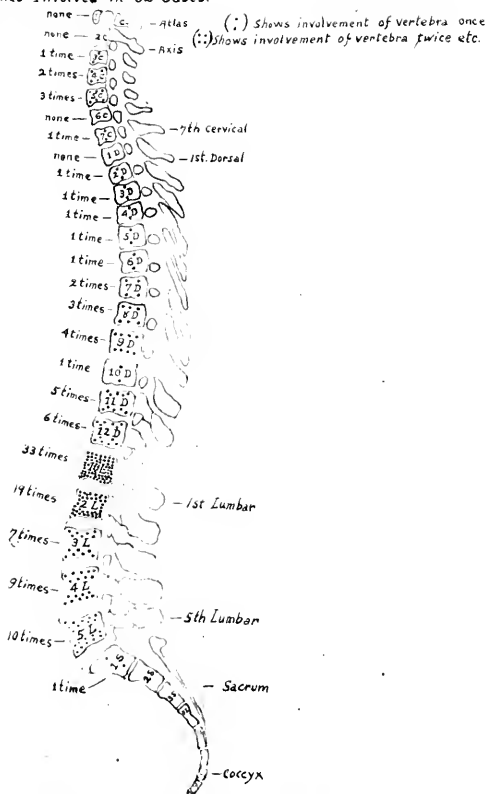 none — C. — Atlas (:) Shows involvement of vertebra once
none 2C — Axis (::) Shows involvement of vertebra twice etc.
1 time — 3C
2 times — 4C
3 times — 5C
none — 6C
1 time — 7C — 7th Cervical
none — 1D — 1st. Dorsal
1 time — 2D
1 time — 3D
1 time — 4D
1 time — 5D
1 time — 6D
2 times — 7D
3 times — 8D
4 times — 9D
1 time 10D
5 times — 11D
6 times — 12D
33 times
19 times 2L — 1st Lumbar
7 times — 3L
9 times — 4L
10 times — 5L — 5th Lumbar
1 time 1S 2S — Sacrum
— Coccyx